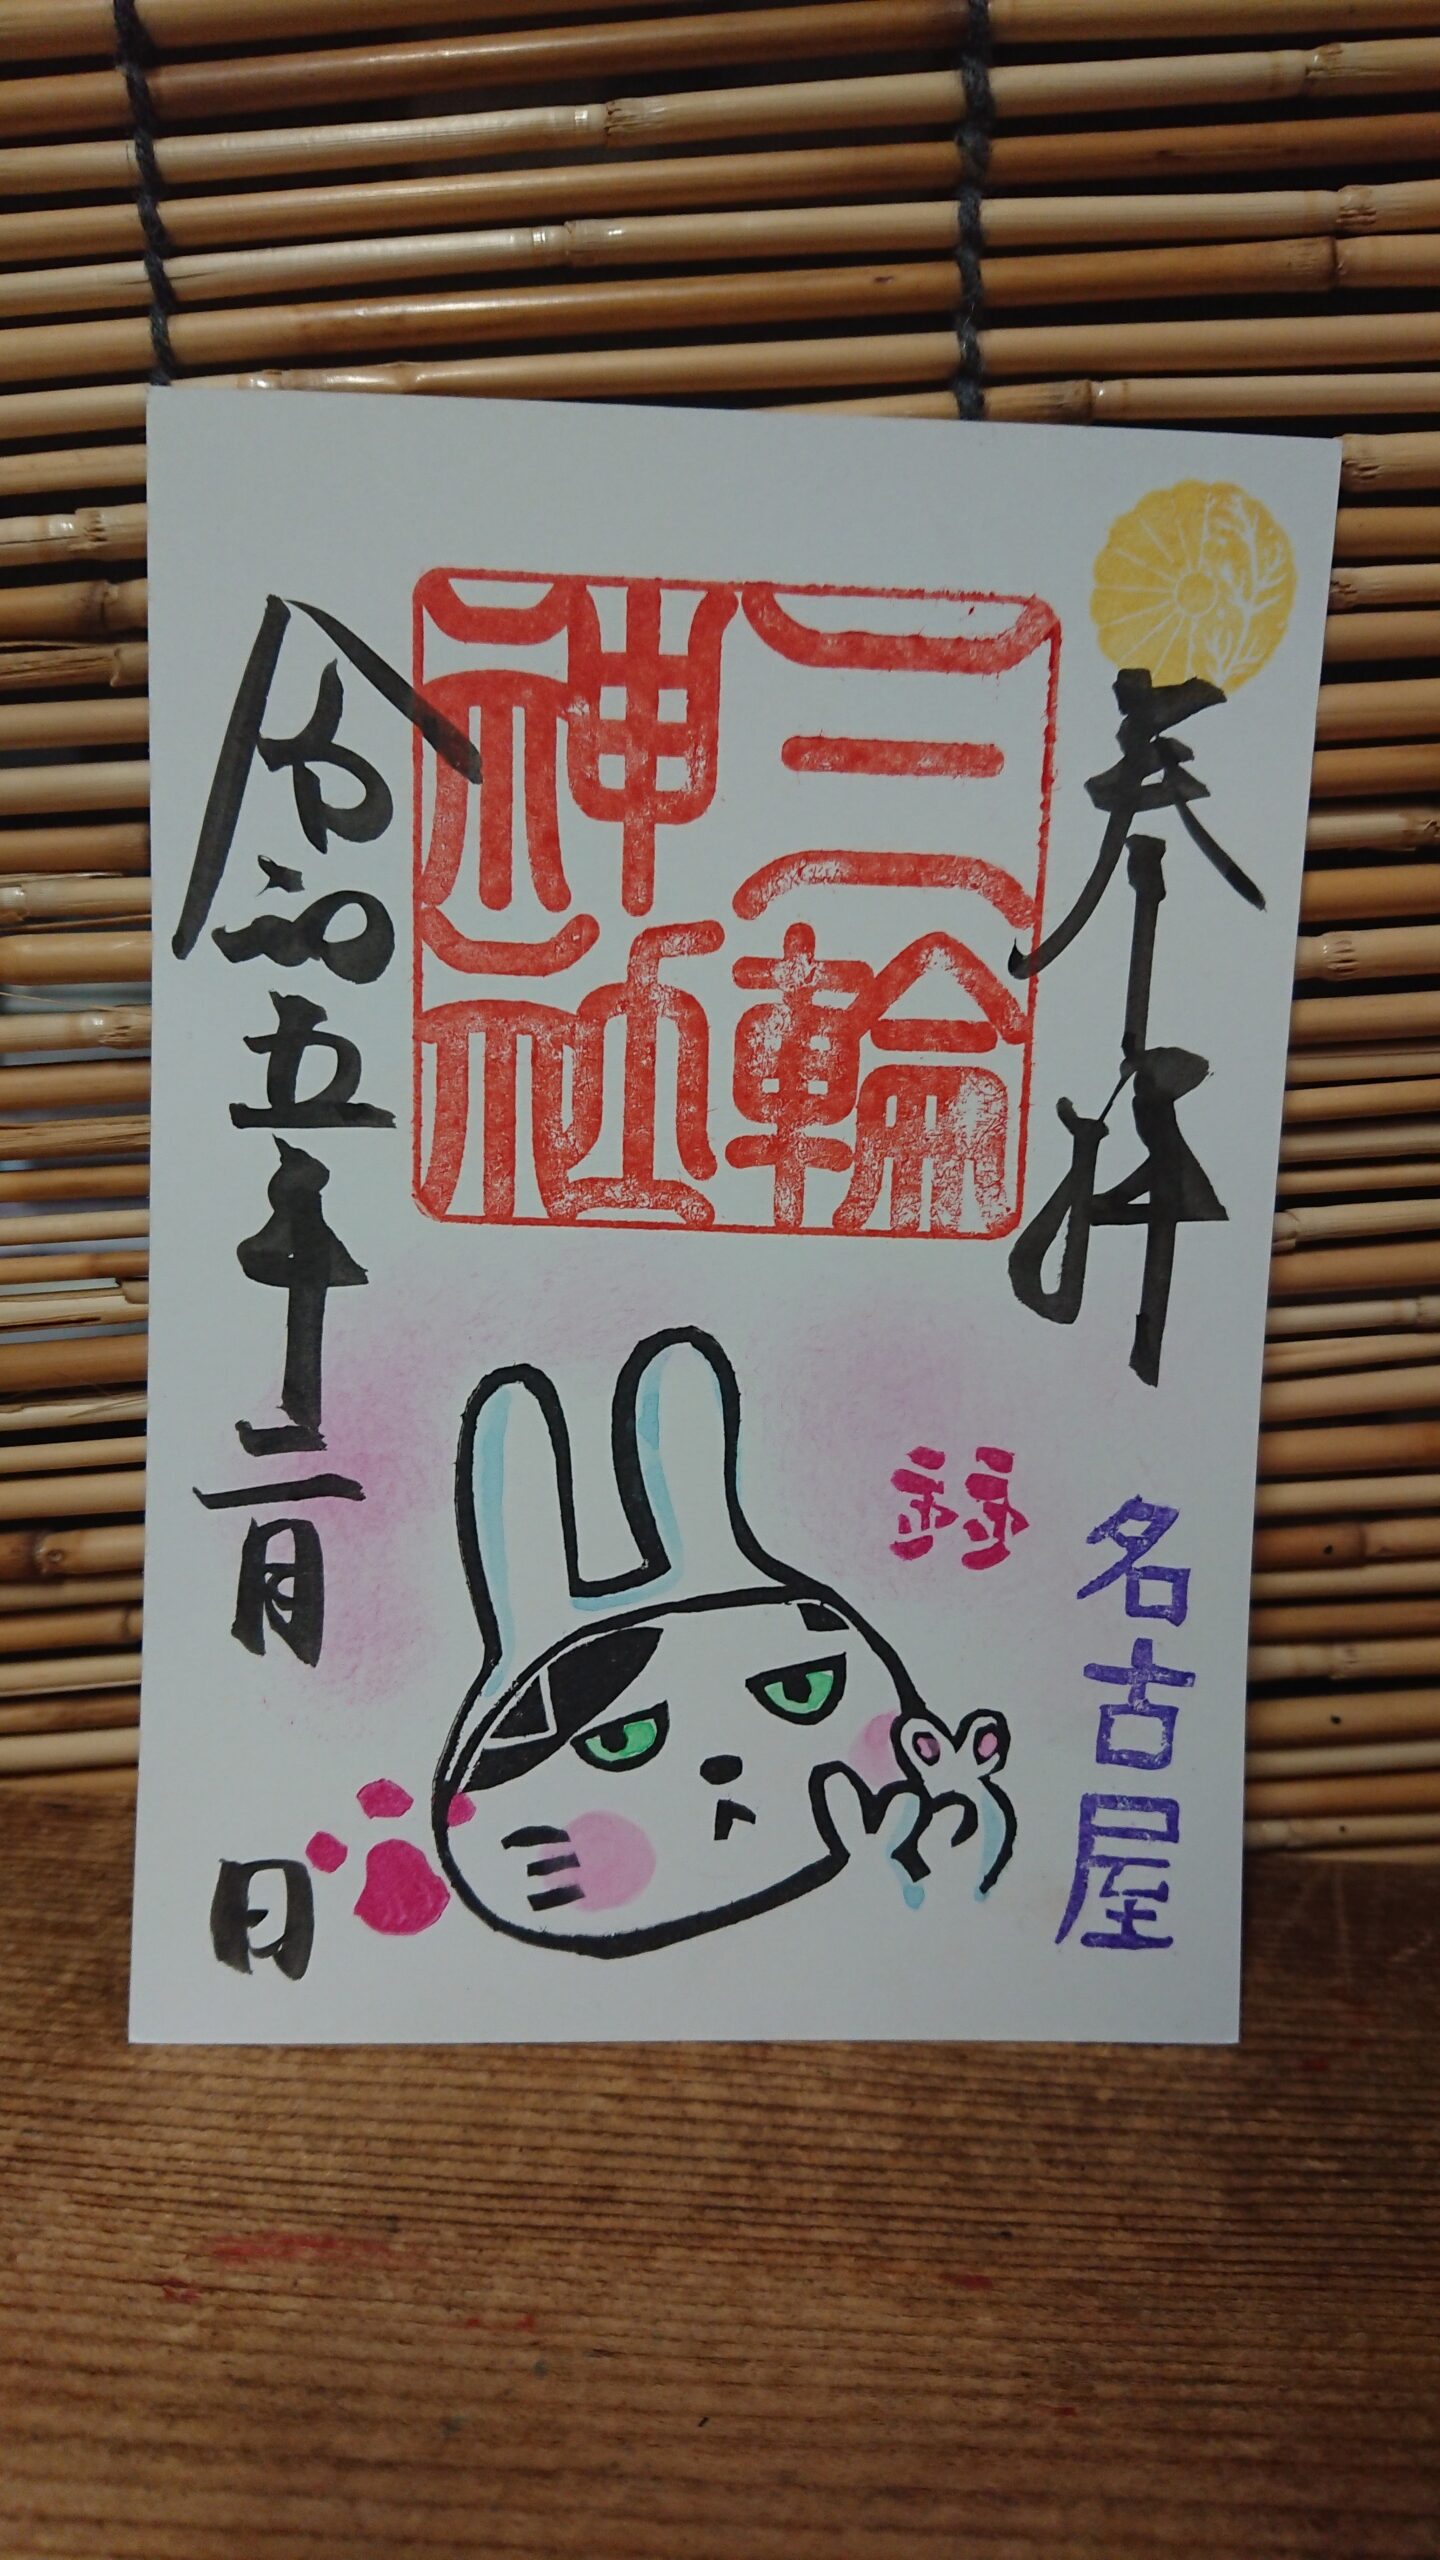 奉拝
名古屋
三輪
神社
令和五年二月
日